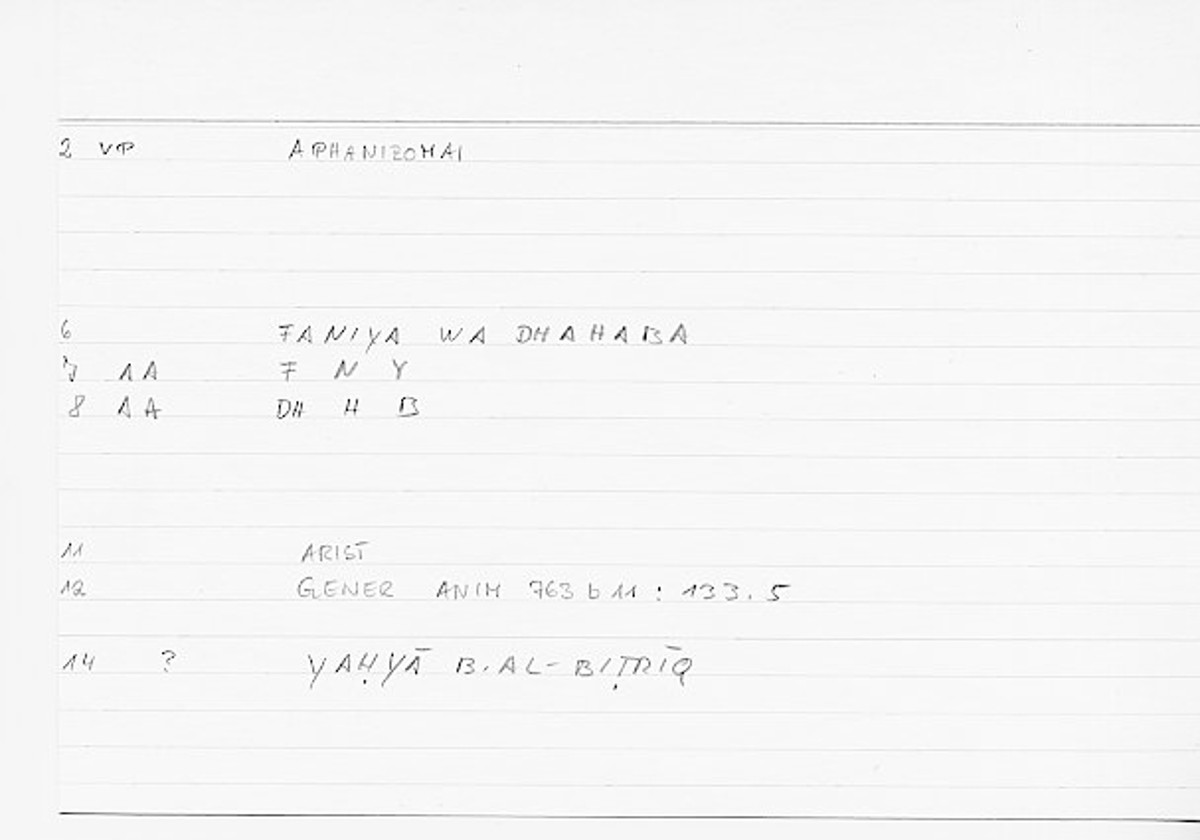 2 VP APHANIZOMAI
6 FANIYA WA DHAHABA
7 AA F N Y
8 AA DH H B
11 ARIST
12 GENER ANIM 763 b 11 : 133.5
14 ? YAḤYĀ B. AL-BIṬRĪQ